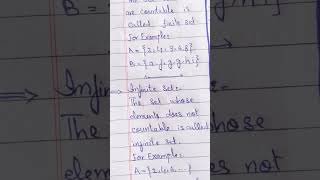 are countable is
called finite set.
For Example:
A = {2,4,
B = {a, f, g, g, h i}
Infinite set:-
The set whose
elements does not
countable is called
infinite set.
For Example:
A = {2,4,6,...}